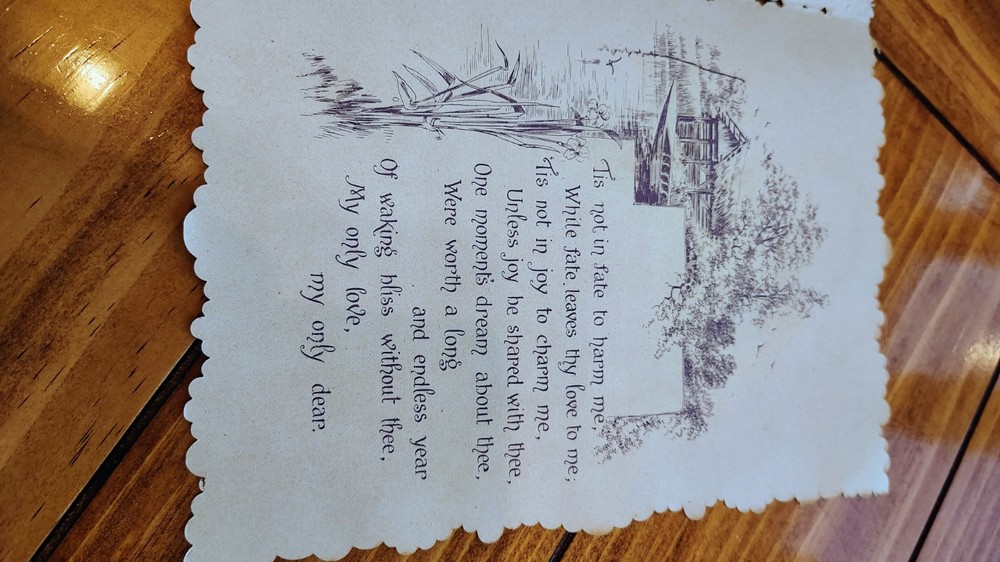 'Tis not in fate to harm me,
While fate leaves thy love to me;
'Tis not in joy to charm me,
Unless joy be shared with thee,
One moment's dream about thee,
Were worth a long
and endless year
Of waking bliss without thee,
My only love,
my only dear.